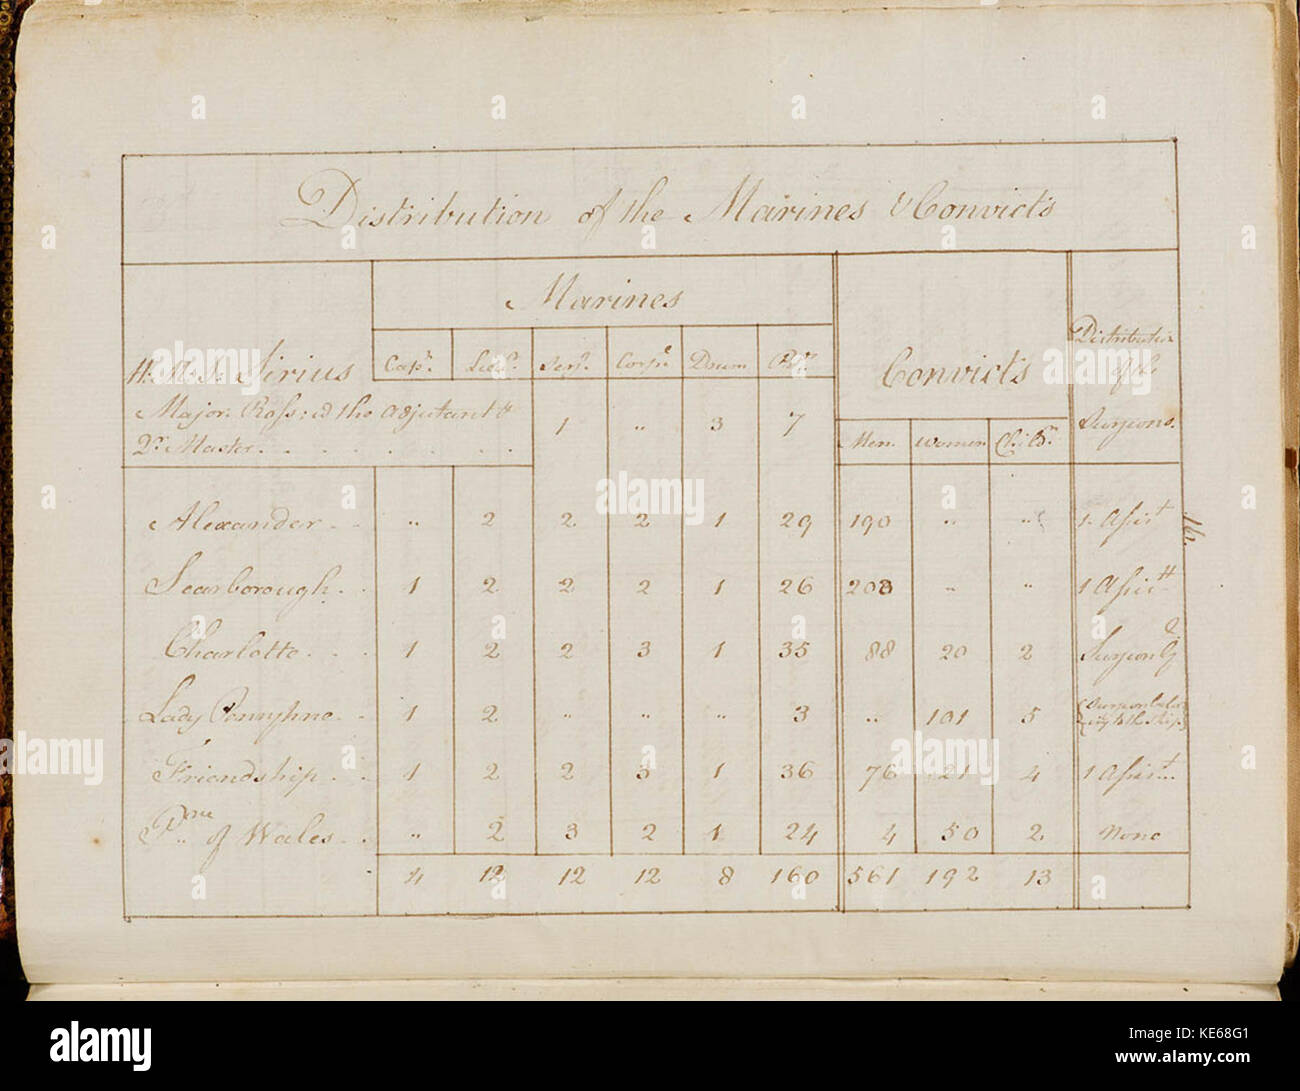 Distribution of the Marines & Convicts
Marines
Capt. Lieut. Serjt. Corpl. Drum Pte.
Convicts
Men. Women Childn.
Distribution
of the
Surgeons.
H. M. S. Sirius
Major Ross; & the Adjutant &
Qr. Master. 1 " 3 7
Alexander " 2 2 2 1 29 190 " " 1. Assist
Scarborough 1 2 2 2 1 26 208 " " 1 Assistt
Charlotte 1 2 2 3 1 35 88 20 2 Surgeon
Lady Penryhne 1 2 " " " 3 " 101 5 to the ship
Friendship 1 2 2 3 1 36 76 21 4 1 Assist
of Wales " 2 3 2 1 24 4 50 2 None
4 12 12 12 8 160 561 192 13
16.
alamy
alamy
Image ID: KE68G1
www.alamy.com